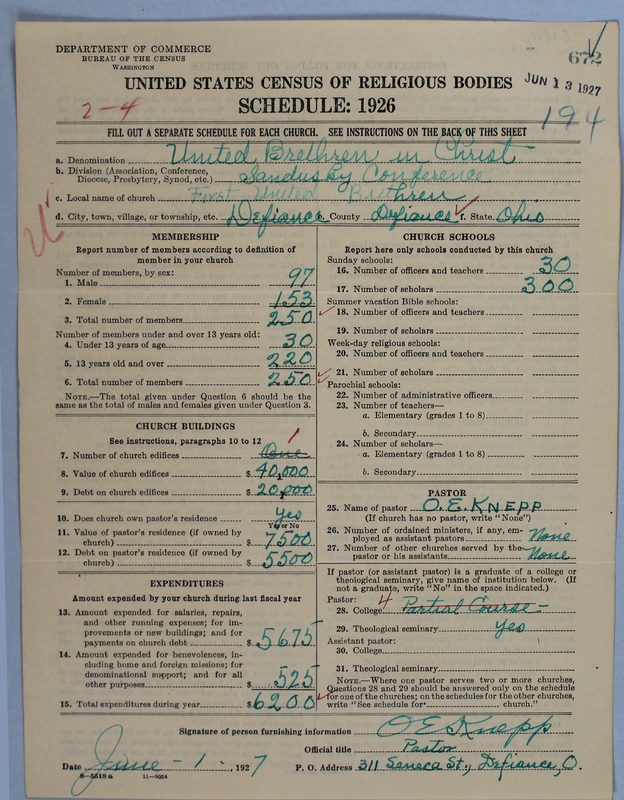 DEPARTMENT OF COMMERCE
BUREAU OF THE CENSUS
WASHINGTON
672
JUN 13 1927
UNITED STATES CENSUS OF RELIGIOUS BODIES
2-4
SCHEDULE: 1926
194
FILL OUT A SEPARATE SCHEDULE FOR EACH CHURCH. SEE INSTRUCTIONS ON THE BACK OF THIS SHEET
a. Denomination United Brethren in Christ
b. Division (Association, Conference, Diocese, Presbytery, Synod, etc.) Sandusky Conference
c. Local name of church First United Brethren
d. City, town, village, or township, etc. Defiance e. County Defiance f. State Ohio
MEMBERSHIP
Report number of members according to definition of
member in your church
Number of members, by sex:
1. Male 97
2. Female 153
3. Total number of members 250
Number of members under and over 13 years old:
4. Under 13 years of age 30
5. 13 years old and over 220
6. Total number of members 250
NOTE.—The total given under Question 6 should be
same as the total of males and females given under Question 3.
CHURCH BUILDINGS
See instructions, paragraphs 10 to 12
7. Number of church edifices One 1
8. Value of church edifices $ 40,000
9. Debt on church edifices $ 20,000
10. Does church own pastor's residence Yes
Yes or No
11. Value of pastor's residence (if owned by
church) $ 7500
12. Debt on pastor's residence (if owned by
church) $ 5500
EXPENDITURES
Amount expended by your church during last fiscal year
13. Amount expended for salaries, repairs,
and other running expenses; for im-
provements or new buildings; and for
payments on church debt $ 5675
14. Amount expended for benevolences, in-
cluding home and foreign missions; for
denominational support; and for all
other purposes $ 525
15. Total expenditures during year $ 6200
CHURCH SCHOOLS
Report here only schools conducted by this church
Sunday schools:
16. Number of officers and teachers 30
17. Number of scholars 300
Summer vacation Bible schools:
18. Number of officers and teachers
19. Number of scholars
Week-day religious schools:
20. Number of officers and teachers
21. Number of scholars
Parochial schools:
22. Number of administrative officers
23. Number of teachers—
a. Elementary (grades 1 to 8)
b. Secondary
24. Number of scholars—
a. Elementary (grades 1 to 8)
b. Secondary
PASTOR
25. Name of pastor O. E. KNEPP
(If church has no pastor, write "None")
26. Number of ordained ministers, if any, em-
ployed as assistant pastors None
27. Number of other churches served by the
pastor or his assistants None
If pastor (or assistant pastor) is a graduate of a college or
theological seminary, give name of institution below. (If
not a graduate, write "No" in the space indicated.)
Pastor:
28. College 4 Partial Course
29. Theological seminary Yes
Assistant pastor:
30. College
31. Theological seminary
NOTE.—Where one pastor serves two or more churches,
Questions 28 and 29 should be answered only on the schedule
for one of the churches; on the schedules for the other churches,
write "See schedule for church."
Signature of person furnishing information O E Knepp
Official title Pastor
Date June - 1 - , 1927 P. O. Address 311 Seneca St., Defiance, O.
8-5518 a 11-9024